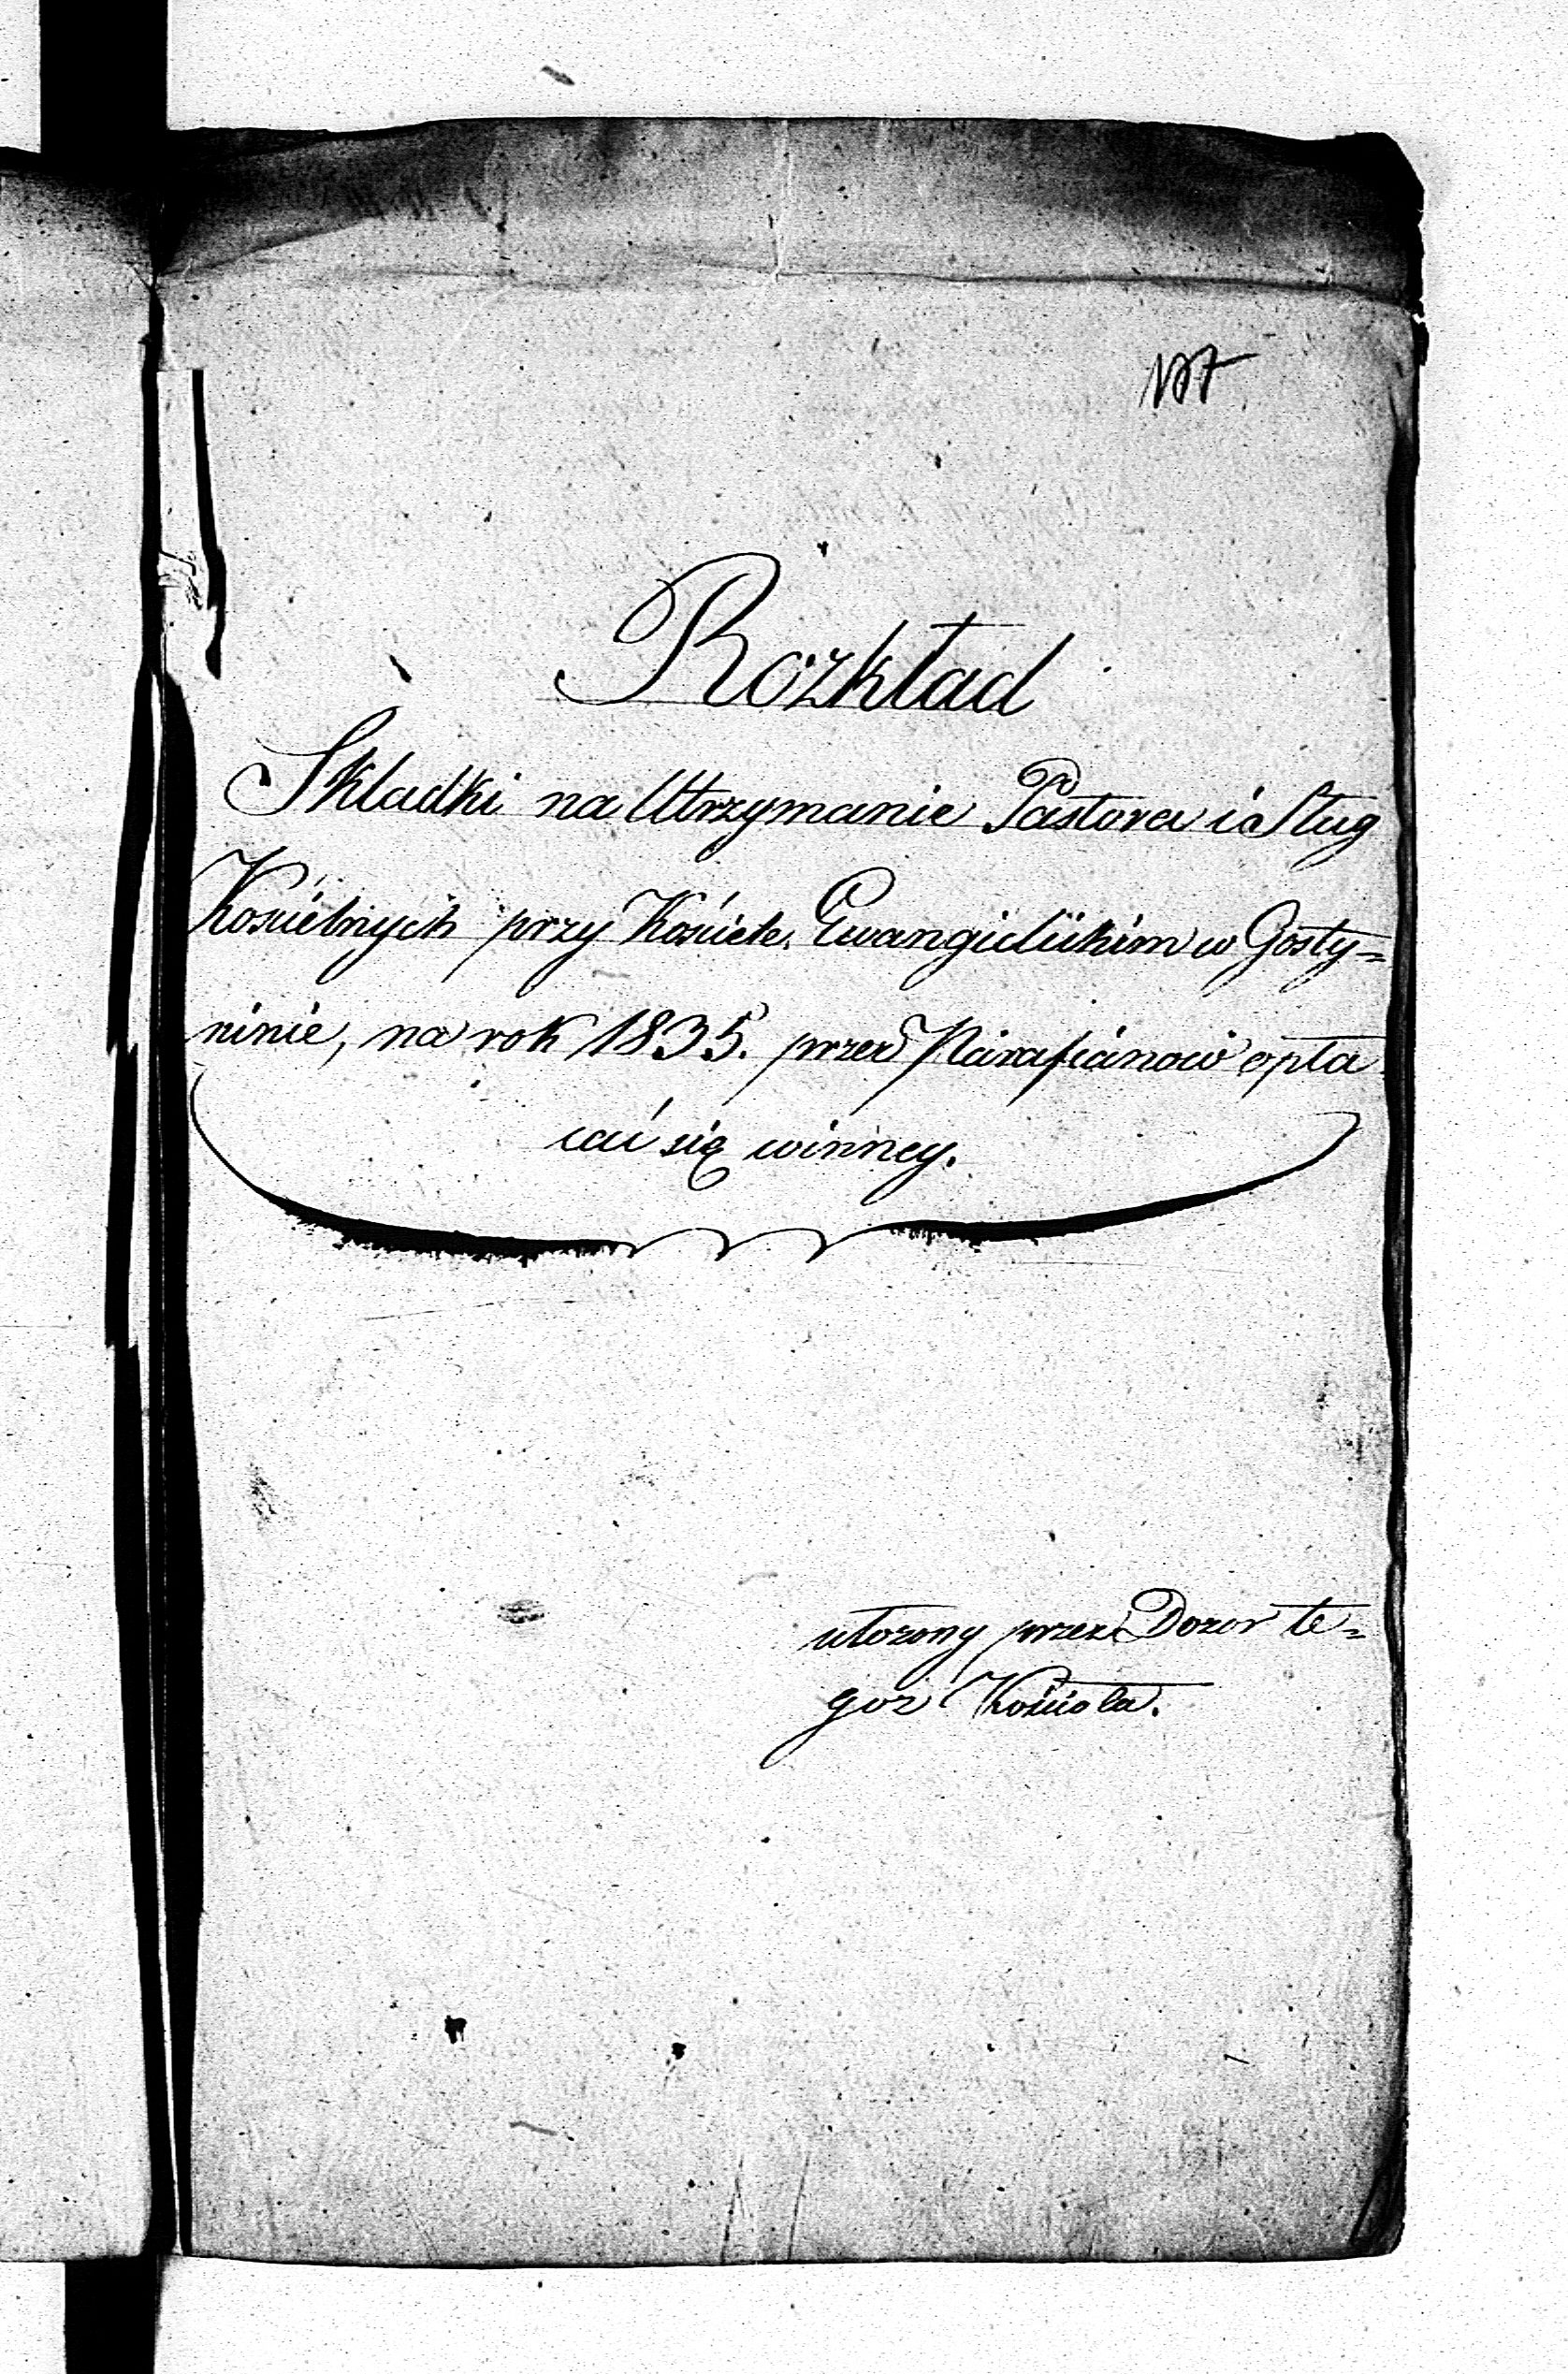 Rozkład
Składki na Utrzymanie Pastora i Sług
Kościelnych przy Kościele Ewangielickim w Gosty=
ninie, na rok 1835. przez Parafianow opła
cać się winney.
ułozony przez Dozor te=
goż Kościoła.